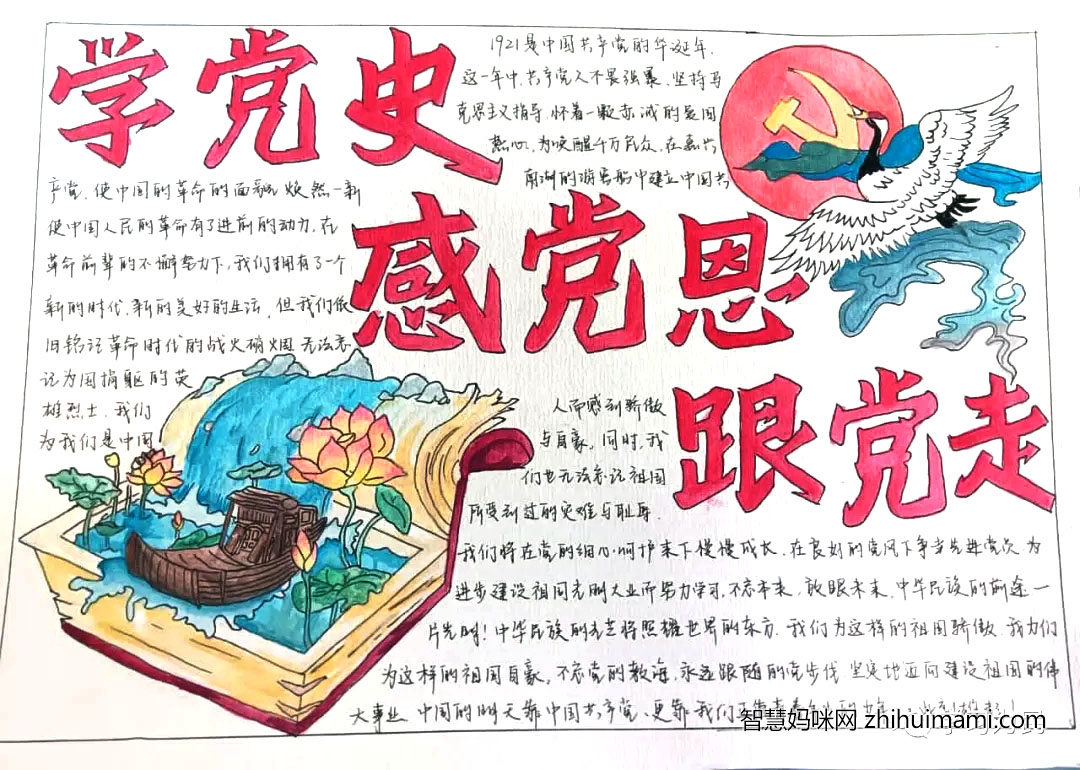 学党史
1921是中国共产党的华诞年.
这一年中.共产党人不畏强暴.坚持马
克思主义指导.怀着一颗赤诚的爱国
热心,为唤醒千万民众,在嘉兴
南湖的游客船中建立中国共
产党,使中国的革命的面貌焕然一新
使中国人民的革命有了进前的动力.在
革命前辈的不懈努力下,我们拥有了一个
新的时代.新的美好的生活,但我们依
旧铭记革命时代的战火硝烟 无法忘
记为国捐躯的英
雄烈士.我们
为我们是中国
感党恩
跟党走
人而感到骄傲
与自豪,同时,我
们也无法忘记祖国
所受到过的灾难与耻辱.
我们将在党的细心呵护来下慢慢成长.在良好的党风下争当先进党员.为
进步建设祖国光刚大业而努力学习,不忘本来.放眼未来.中华民族的前途一
片光明!中华民族的光芒将照耀世界的东方.我们为这样的祖国骄傲.我为们
为这样的祖国自豪,不忘党的教诲.永远跟随的党步伐 坚定地迈向建设祖国的伟
大事业 中国的明天靠中国共产党,更靠我们
智慧妈咪网 zhihuimami.com